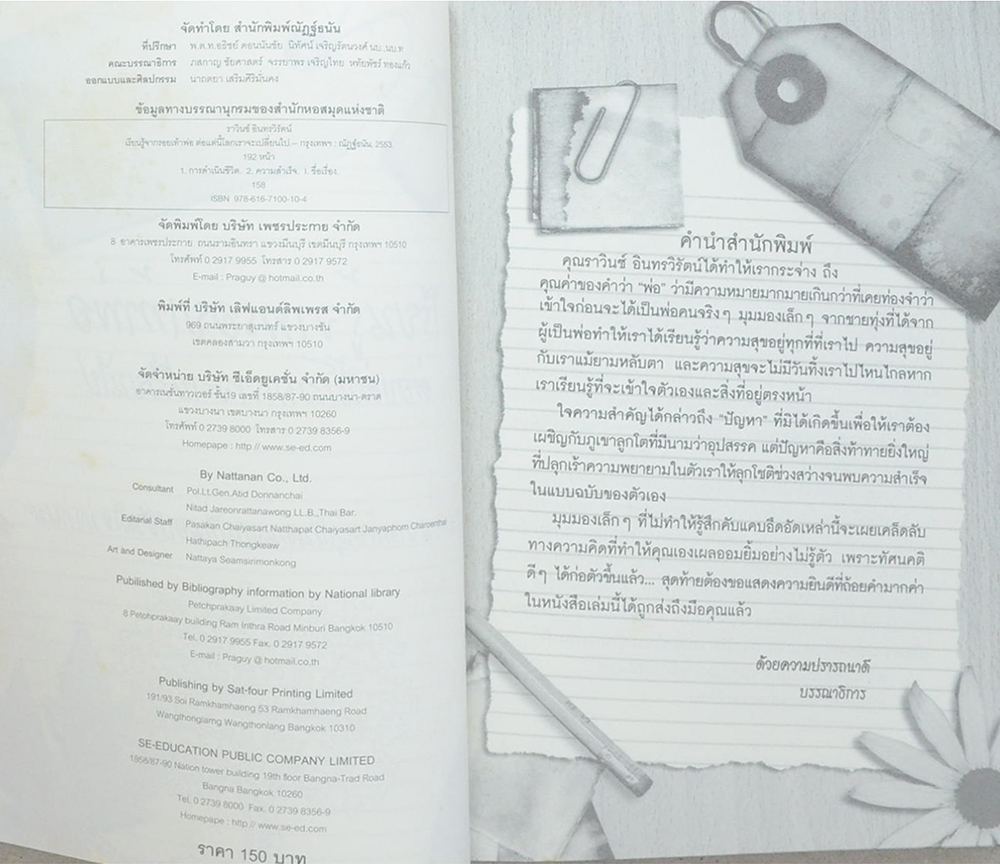 จัดทำโดย สำนักพิมพ์ณัฏฐ์ธนัน
ที่ปรึกษา พ.ต.ท.อธิชย์ ดอนนันชัย นิทัศน์ เจริญรัตนวงศ์ นบ.,นบ.ท
คณะบรรณาธิการ ภสกาญ ชัยศาสตร์ จรรยาพร เจริญไทย หทัยพัชร์ ทองแก้ว
ออกแบบและศิลปกรรม นาถตยา เสริมศิริมั่นคง
ข้อมูลทางบรรณานุกรมของสำนักหอสมุดแห่งชาติ
ราวินซ์ อินทรวิรัตน์
เรียนรู้จากรอยเท้าพ่อ ต่อแต่นี้โลกเราจะเปลี่ยนไป.-- กรุงเทพฯ : ณัฏฐ์ธนัน, 2553.
192 หน้า
1. การดำเนินชีวิต. 2. ความสำเร็จ. I. ชื่อเรื่อง.
158
ISBN 978-616-7100-10-4
จัดพิมพ์โดย บริษัท เพชรประกาย จำกัด
8 อาคารเพชรประกาย ถนนรามอินทรา แขวงมีนบุรี เขตมีนบุรี กรุงเทพฯ 10510
โทรศัพท์ 0 2917 9955 โทรสาร 0 2917 9572
E-mail : Praguy @ hotmail.co.th
พิมพ์ที่ บริษัท เลิฟแอนด์ลิพเพรส จำกัด
969 ถนนพระยาสุเรนทร์ แขวงบางชัน
เขตคลองสามวา กรุงเทพฯ 10510
จัดจำหน่าย บริษัท ซีเอ็ดยูเคชั่น จำกัด (มหาชน)
อาคารเนชั่นทาวเวอร์ ชั้น19 เลขที่ 1858/87-90 ถนนบางนา-ตราด
แขวงบางนา เขตบางนา กรุงเทพฯ 10260
โทรศัพท์ 0 2739 8000 โทรสาร 0 2739 8356-9
Homepape : http // www.se-ed.com
By Nattanan Co., Ltd.
Consultant Pol.Lt.Gen.Atid Donnanchai
Nitad Jareonrattanawong LL.B.,Thai Bar.
Editarial Staff Pasakan Chaiyasart Natthapat Chaiyasart Janyaphorn Charoenthai
Hathipach Thongkeaw
Art and Designer Nattaya Seamsirimonkong
Pubilished by Bibliography information by National library
Petchprakaay Limited Company
8 Petchprakaay building Ram Inthra Road Minburi Bangkok 10510
Tel. 0 2917 9955 Fax. 0 2917 9572
E-mail : Praguy @ hotmail.co.th
Publishing by Sat-four Printing Limited
191/93 Soi Ramkhamhaeng 53 Ramkhamhaeng Road
Wangthonglarng Wangthonlang Bangkok 10310
SE-EDUCATION PUBLIC COMPANY LIMITED
1858/87-90 Nation tower building 19th floor Bangna-Trad Road
Bangna Bangkok 10260
Tel. 0 2739 8000 Fax. 0 2739 8356-9
Homepape : http // www.se-ed.com
ราคา 150 บาท
คำนำสำนักพิมพ์
คุณราวินซ์ อินทรวิรัตน์ได้ทำให้เรากระจ่าง ถึง
คุณค่าของคำว่า "พ่อ" ว่ามีความหมายมากมายเกินกว่าที่เคยท่องจำว่า
เข้าใจก่อนจะได้เป็นพ่อคนจริงๆ มุมมองเล็กๆ จากชายทุ่งที่ได้จาก
ผู้เป็นพ่อทำให้เราได้เรียนรู้ว่าความสุขอยู่ทุกที่ที่เราไป ความสุขอยู่
กับเราแม้ยามหลับตา และความสุขจะไม่มีวันทิ้งเราไปไหนไกลหาก
เราเรียนรู้ที่จะเข้าใจตัวเองและสิ่งที่อยู่ตรงหน้า
ใจความสำคัญได้กล่าวถึง "ปัญหา" ที่มิได้เกิดขึ้นเพื่อให้เราต้อง
เผชิญกับภูเขาลูกโตที่มีนามว่าอุปสรรค แต่ปัญหาคือสิ่งท้าทายยิ่งใหญ่
ที่ปลุกเร้าความพยายามในตัวเราให้ลุกโชติช่วงสว่างจนพบความสำเร็จ
ในแบบฉบับของตัวเอง
มุมมองเล็กๆ ที่ไม่ทำให้รู้สึกคับแคบอึดอัดเหล่านี้จะเผยเคล็ดลับ
ทางความคิดที่ทำให้คุณเองเผลออมยิ้มอย่างไม่รู้ตัว เพราะทัศนคติ
ดีๆ ได้ก่อตัวขึ้นแล้ว... สุดท้ายต้องขอแสดงความยินดีที่ถ้อยคำมากค่า
ในหนังสือเล่มนี้ได้ถูกส่งถึงมือคุณแล้ว
ด้วยความปรารถนาดี
บรรณาธิการ